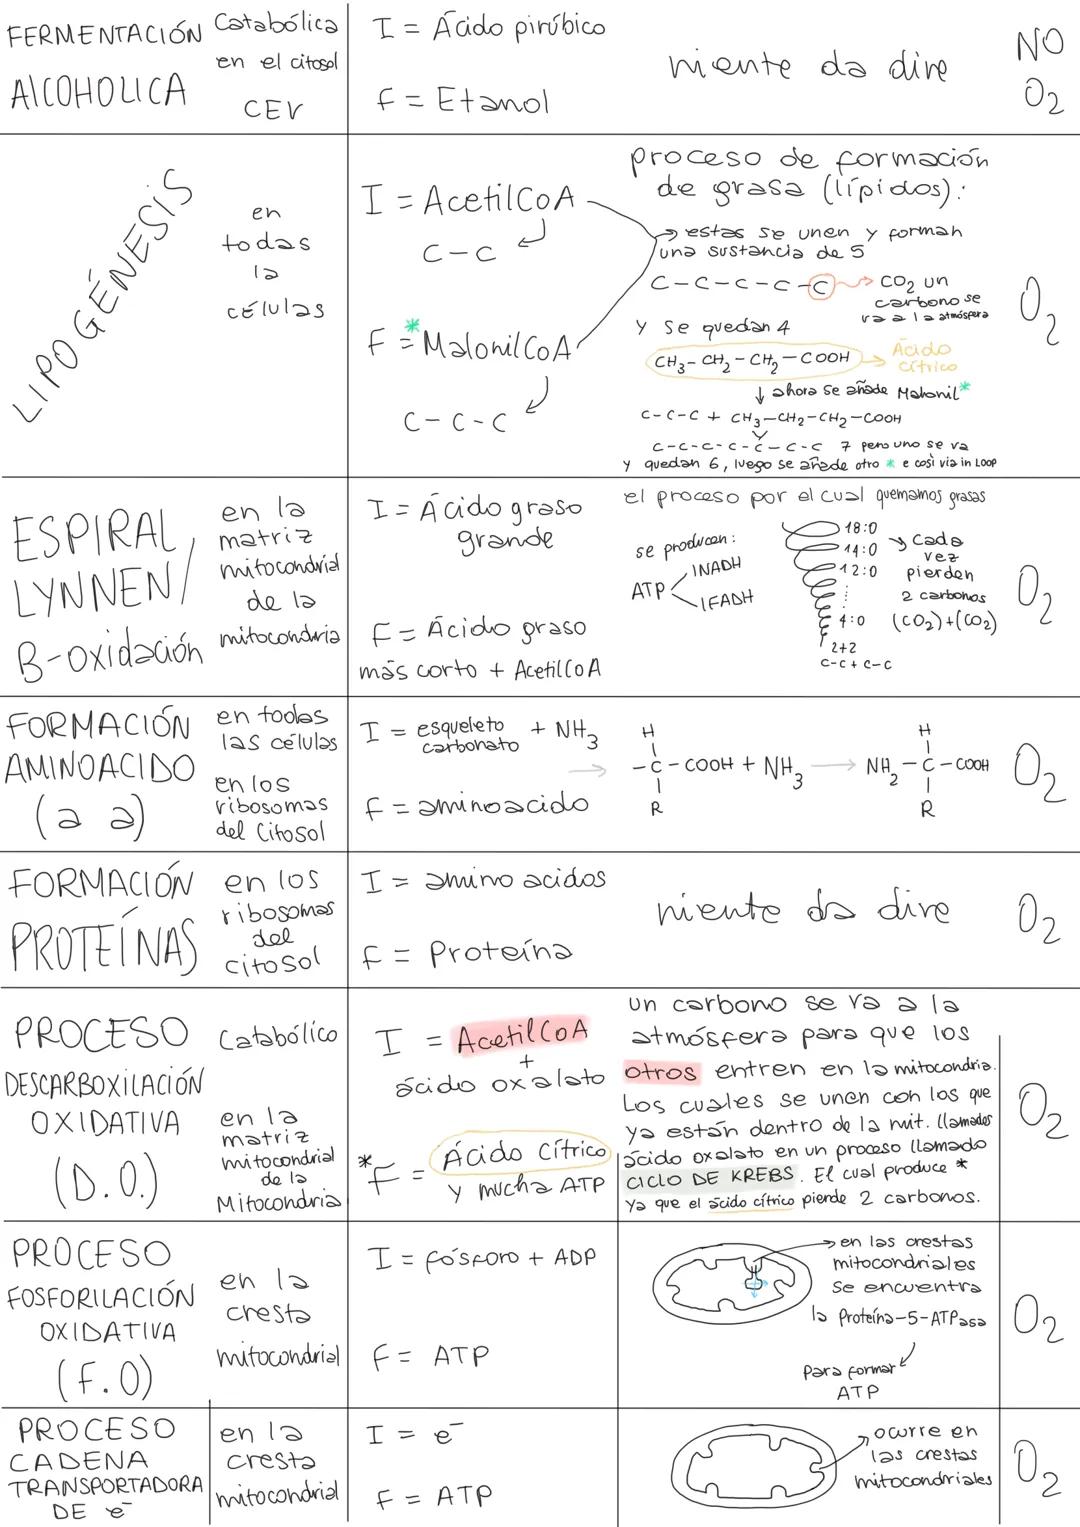 FERMENTACIÓN
AlCOHOLICA
Catabólica
en el citosol
CEV
I = Ácido pirúbico
F = Etanol
niente da dire
NO
O2
LIPOGÉNESIS
en
todas
la
células
I = AcetilCoA
C-C
F =* MalonilCoA
C-C-C
proceso de formación
de grasa (lípidos):
→ estas se unen y forman
una sustancia de 5
C-C-C-C-C → CO2 un
carbono se
va a la atmósfera
y se quedan 4
CH3-CH2-CH2-COOH → Ácido
cítrico
↓ ahora se añade Malonil*
C-C-C + CH3-CH2-CH2-COOH
C-C-C-C-C-C-C 7 pero uno se va
y quedan 6, luego se añade otro * e così via in LOOP
O2
ESPIRAL
LYNNEN/
B-oxidación
en la
matriz
mitocondrial
de la
mitocondria
I = Ácido graso
grande
F = Ácido graso
más corto + AcetilCoA
el proceso por el cual quemamos grasas
se producen:
ATP
1NADH
1FADH
18:0
14:0
12:0
4:0
2+2
C-C + C-C
→ Cada
vez
pierden
2 carbonos
(CO2)+(CO2)
O2
FORMACIÓN
AMINOACIDO
(a a)
en todas
las células
en los
ribosomas
del Citosol
I = esqueleto
carbonato
+ NH3
→
F = aminoacido
H
-C-COOH + NH3
R
→
H
NH2-C-COOH
R
O2
FORMACIÓN
PROTEÍNAS
en los
ribosomas
del
citosol
I = amino acidos
F = Proteína
niente da dire
O2
PROCESO
DESCARBOXILACIÓN
OXIDATIVA
(D.O.)
Catabólico
en la
matriz
mitocondrial
de la
Mitocondria
I = AcetilCoA
+
ácido oxalato
*F = Ácido Cítrico
y mucha ATP
un carbono se va a la
atmósfera para que los
otros entren en la mitocondria.
Los cuales se unen con los que
ya están dentro de la mit. (llamados
ácido oxalato en un proceso llamado
CICLO DE KREBS. El cual produce *
Ya que el ácido cítrico pierde 2 carbonos.
O2
PROCESO
FOSFORILACIÓN
OXIDATIVA
(F.O)
en la
cresta
mitocondrial
I = fósforo + ADP
F = ATP
→ en las crestas
mitocondriales
se encuentra
la Proteína-5-ATPasa
Para formar
ATP
O2
PROCESO
CADENA
TRANSPORTADORA
DE e-
en la
cresta
mitocondrial
I = e-
F = ATP
→ ocurre en
las crestas
mitocondriales
O2